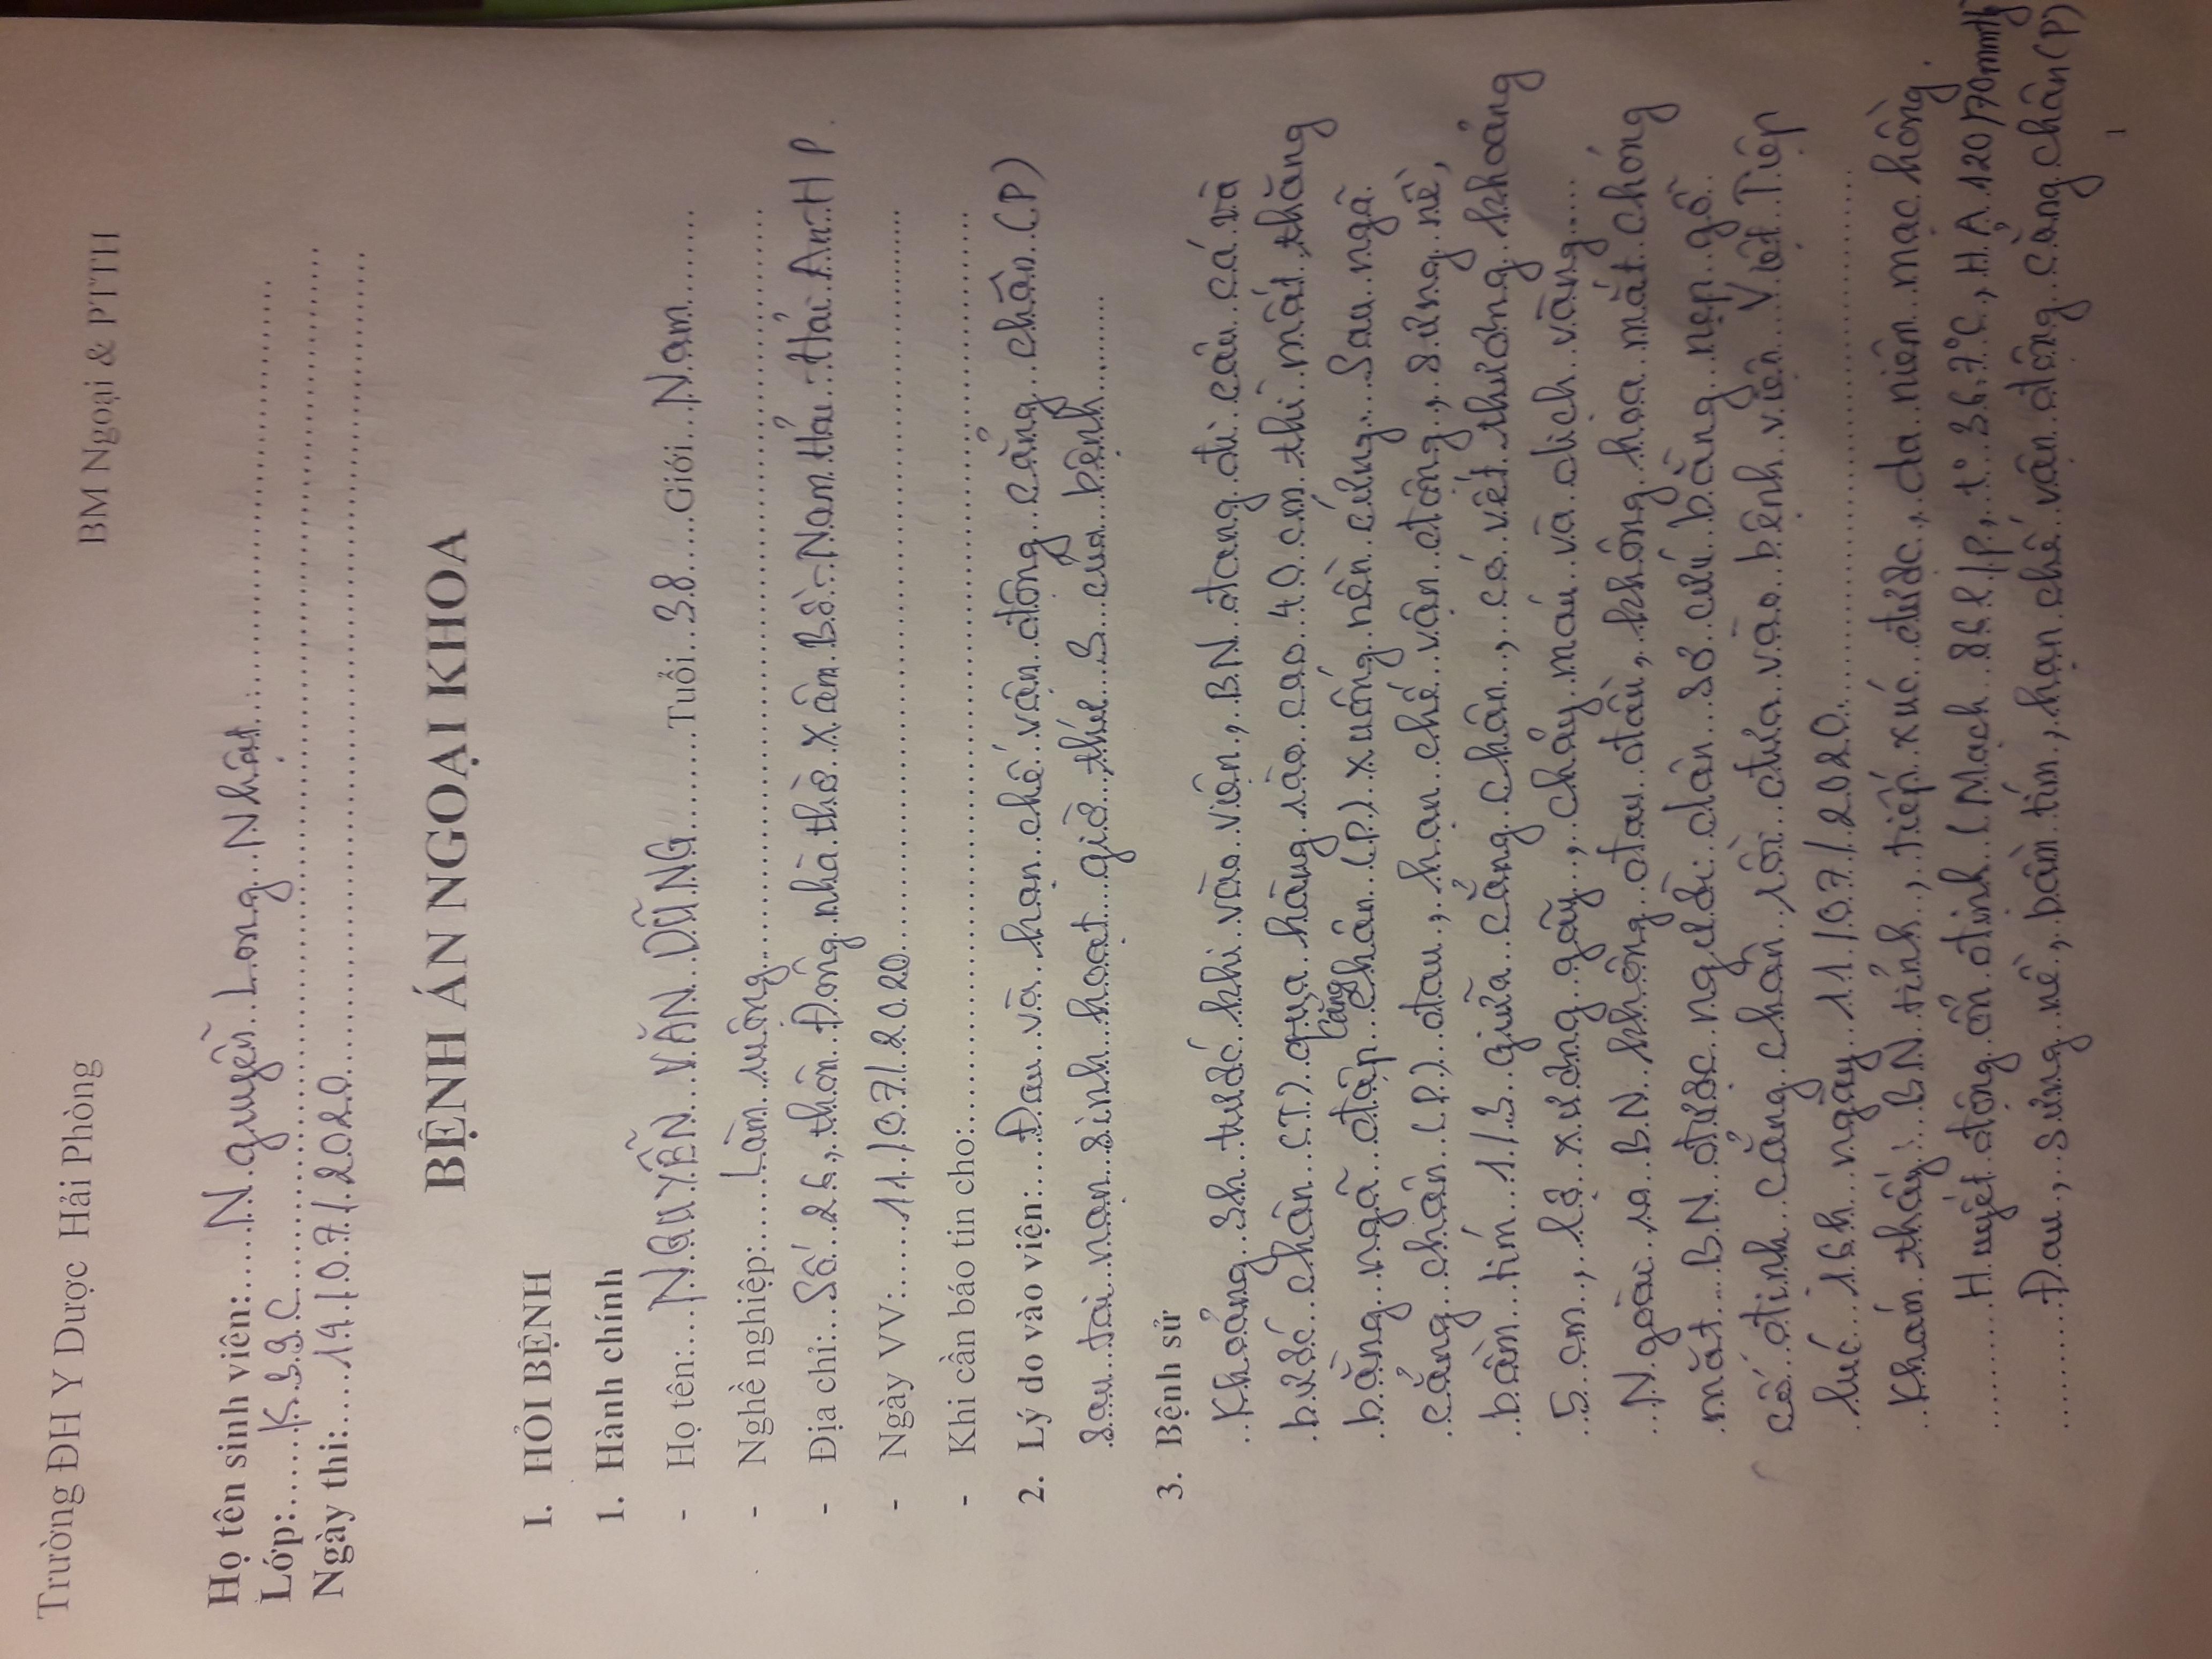 Trường ĐH Y Dược Hải Phòng
BM Ngoại & PTTH
Họ tên sinh viên: Nguyễn Long Nhật
Lớp: K39C
Ngày thi: 14/07/2020
BỆNH ÁN NGOẠI KHOA
I. HỎI BỆNH
1. Hành chính
- Họ tên: NGUYỄN VĂN DŨNG Tuổi 38 Giới Nam
- Nghề nghiệp: Làm ruộng
- Địa chỉ: Số 26, thôn Đông nhà thờ Xâm Bồ - Nam Hải - Hải An - HP
- Ngày VV: 11/07/2020
- Khi cần báo tin cho:
2. Lý do vào viện: Đau và hạn chế vận động cẳng chân (P)
sau tai nạn sinh hoạt giờ thứ 3 của bệnh
3. Bệnh sử
Khoảng 3h trước khi vào viện, BN đang đi câu cá và
bước chân (T) qua hàng rào cao 40 cm thì mất thăng
bằng ngã đập cẳng chân (P) xuống nền cứng. Sau ngã
cẳng chân (P) đau, hạn chế vận động, sưng nề,
bầm tím 1/3 giữa cẳng chân, có vết thương khoảng
5 cm, lộ xương gãy, chảy máu và dịch vàng
Ngoài ra BN không đau đầu, không hoa mắt chóng
mặt. BN được người dân sơ cứu bằng nẹp gỗ
cố định cẳng chân rồi đưa vào bệnh viện Việt Tiệp
lúc 16h ngày 11/07/2020.
Khám thấy: BN tỉnh, tiếp xúc được, da niêm mạc hồng.
Huyết động ổn định (Mạch 86 l/p, t° 36,7°C, HA 120/70mmHg
Đau, sưng nề, bầm tím, hạn chế vận động cẳng chân (P)
1